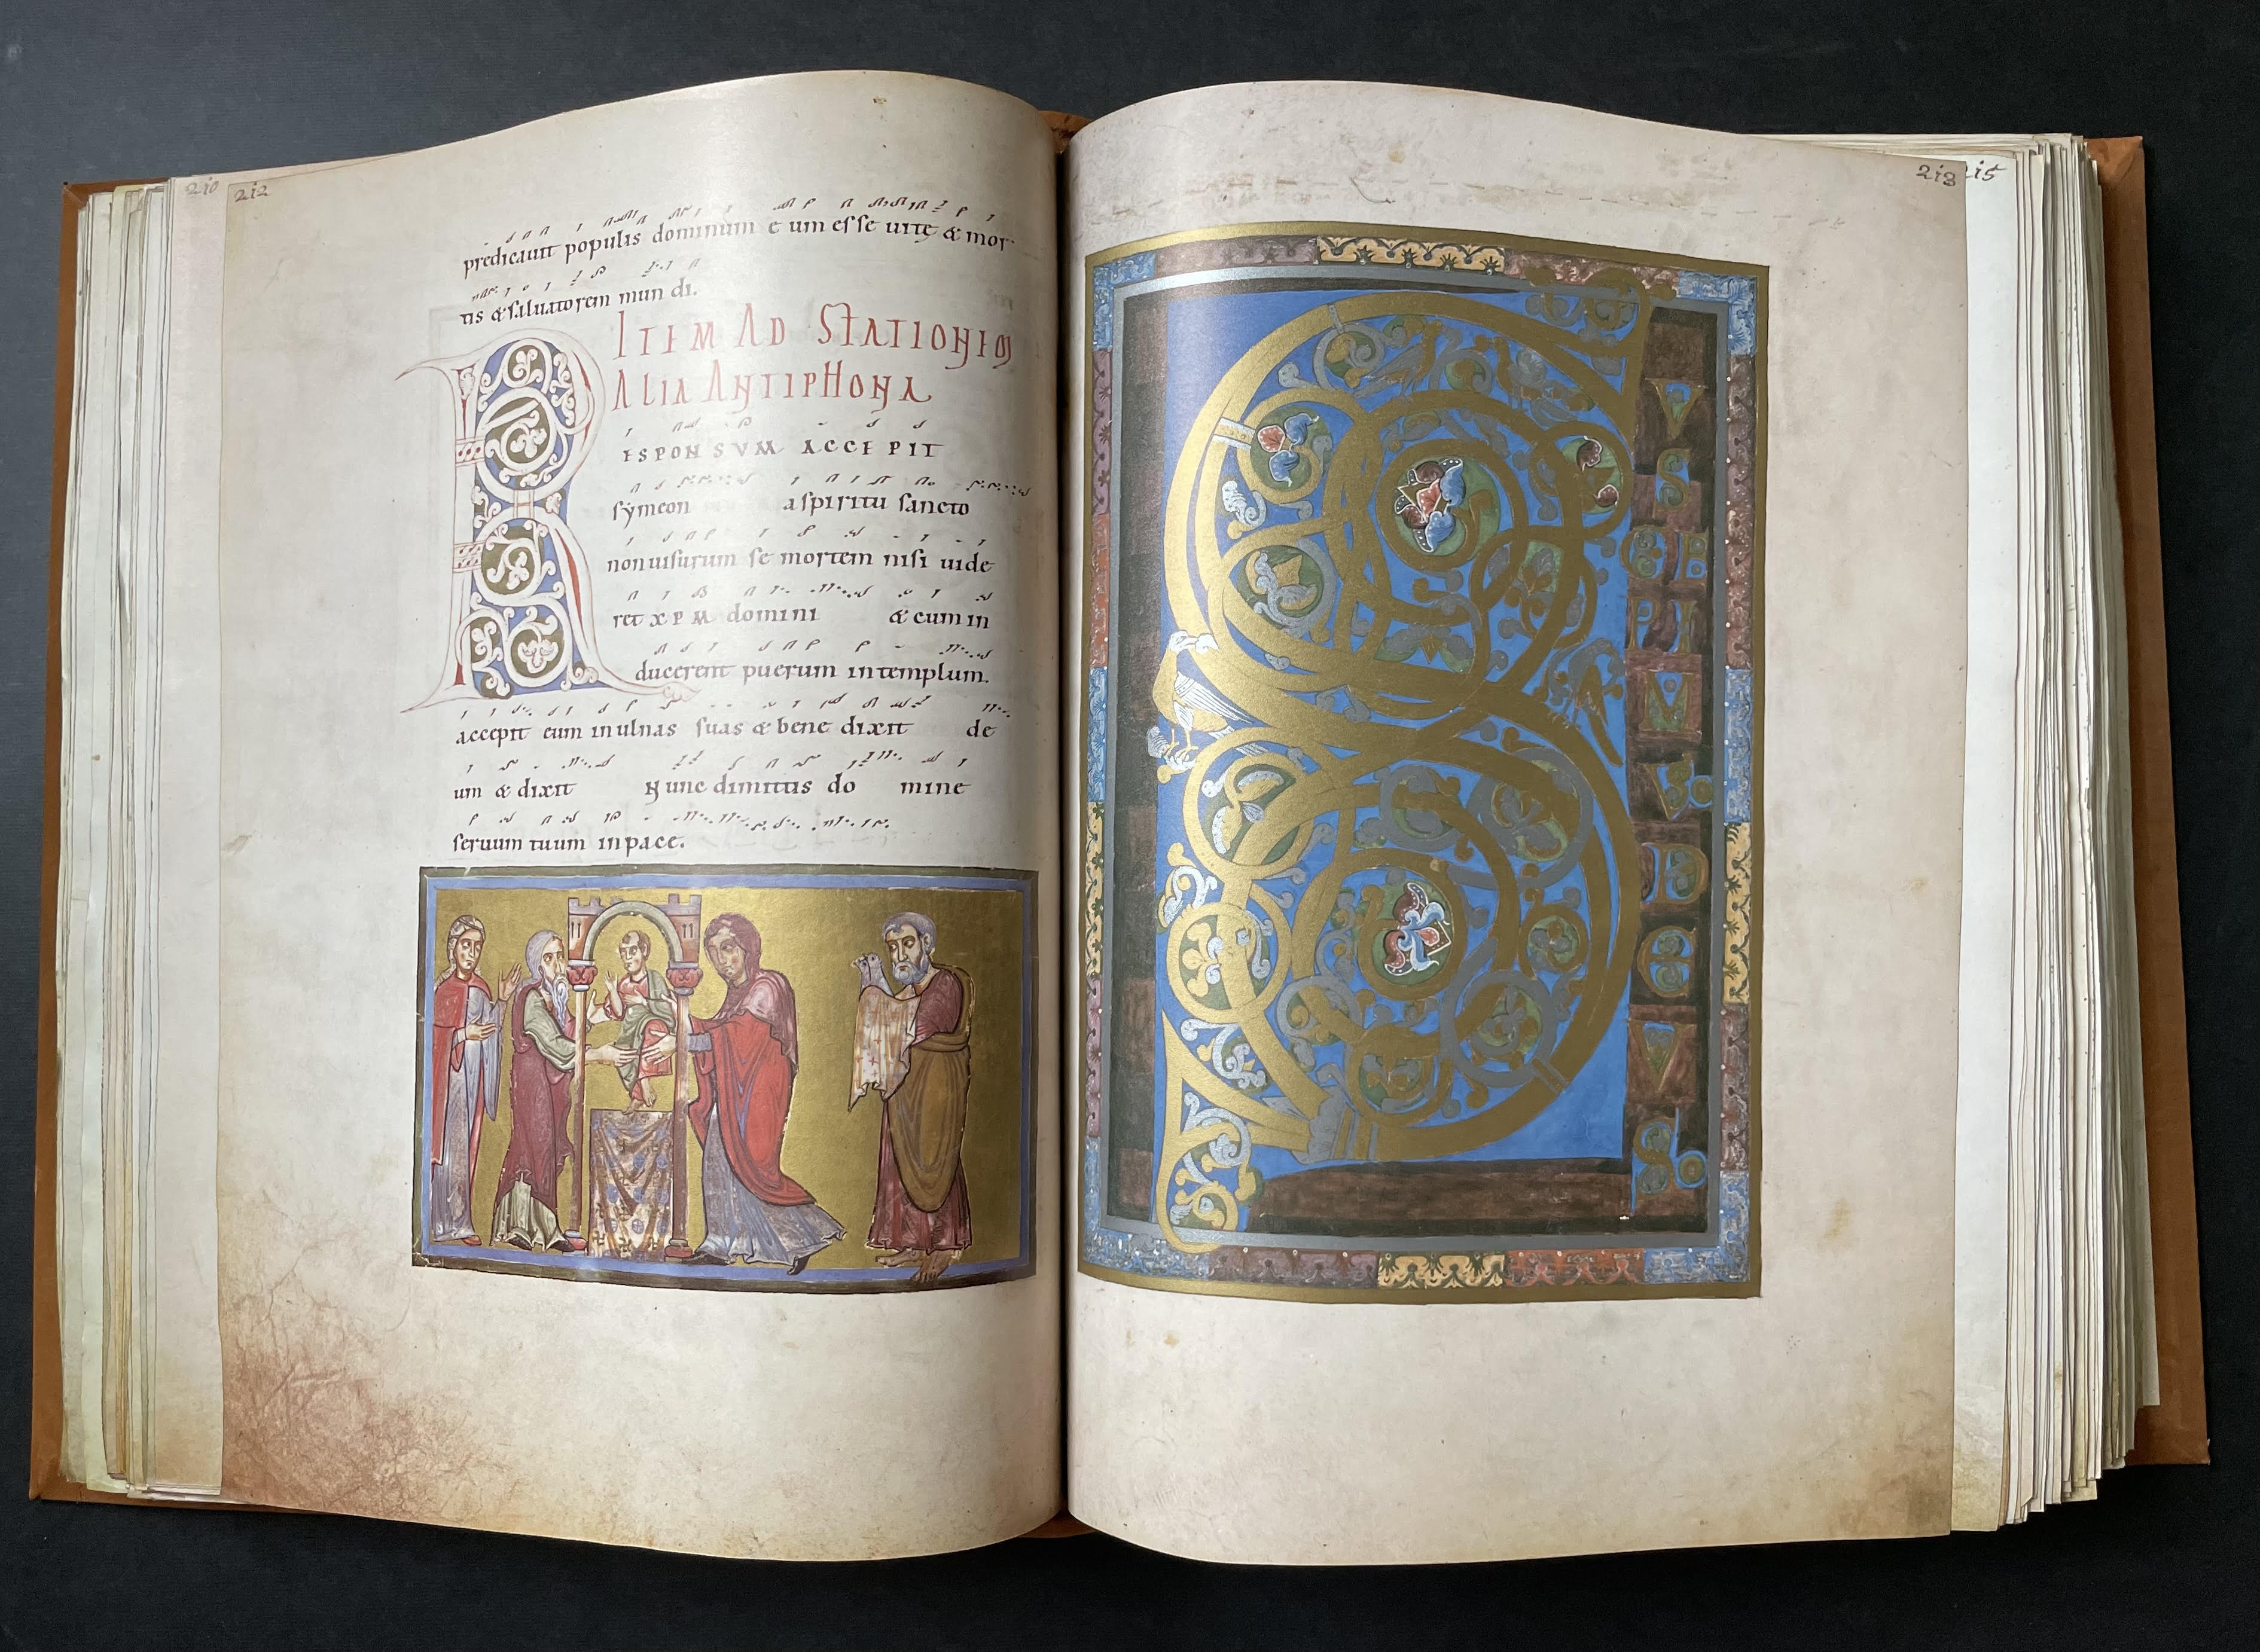 210
212
predicauit populis dominum e um esse uitę & mor
tis & saluatorem mun di.
ITEM AD STATIONEM
ALIA ANTIPHONA
R ESPONSVM ACCEPIT
symeon a spiritu sancto
non uisurum se mortem nisi uide
ret XPM domini & cum in
ducerent puerum in templum.
accepit eum in ulnas suas & bene dixit de
um & dixit Nunc dimittis do mine
seruum tuum in pace.
213
215
S
V
S
CE
PI
M
V
D
E
V
S